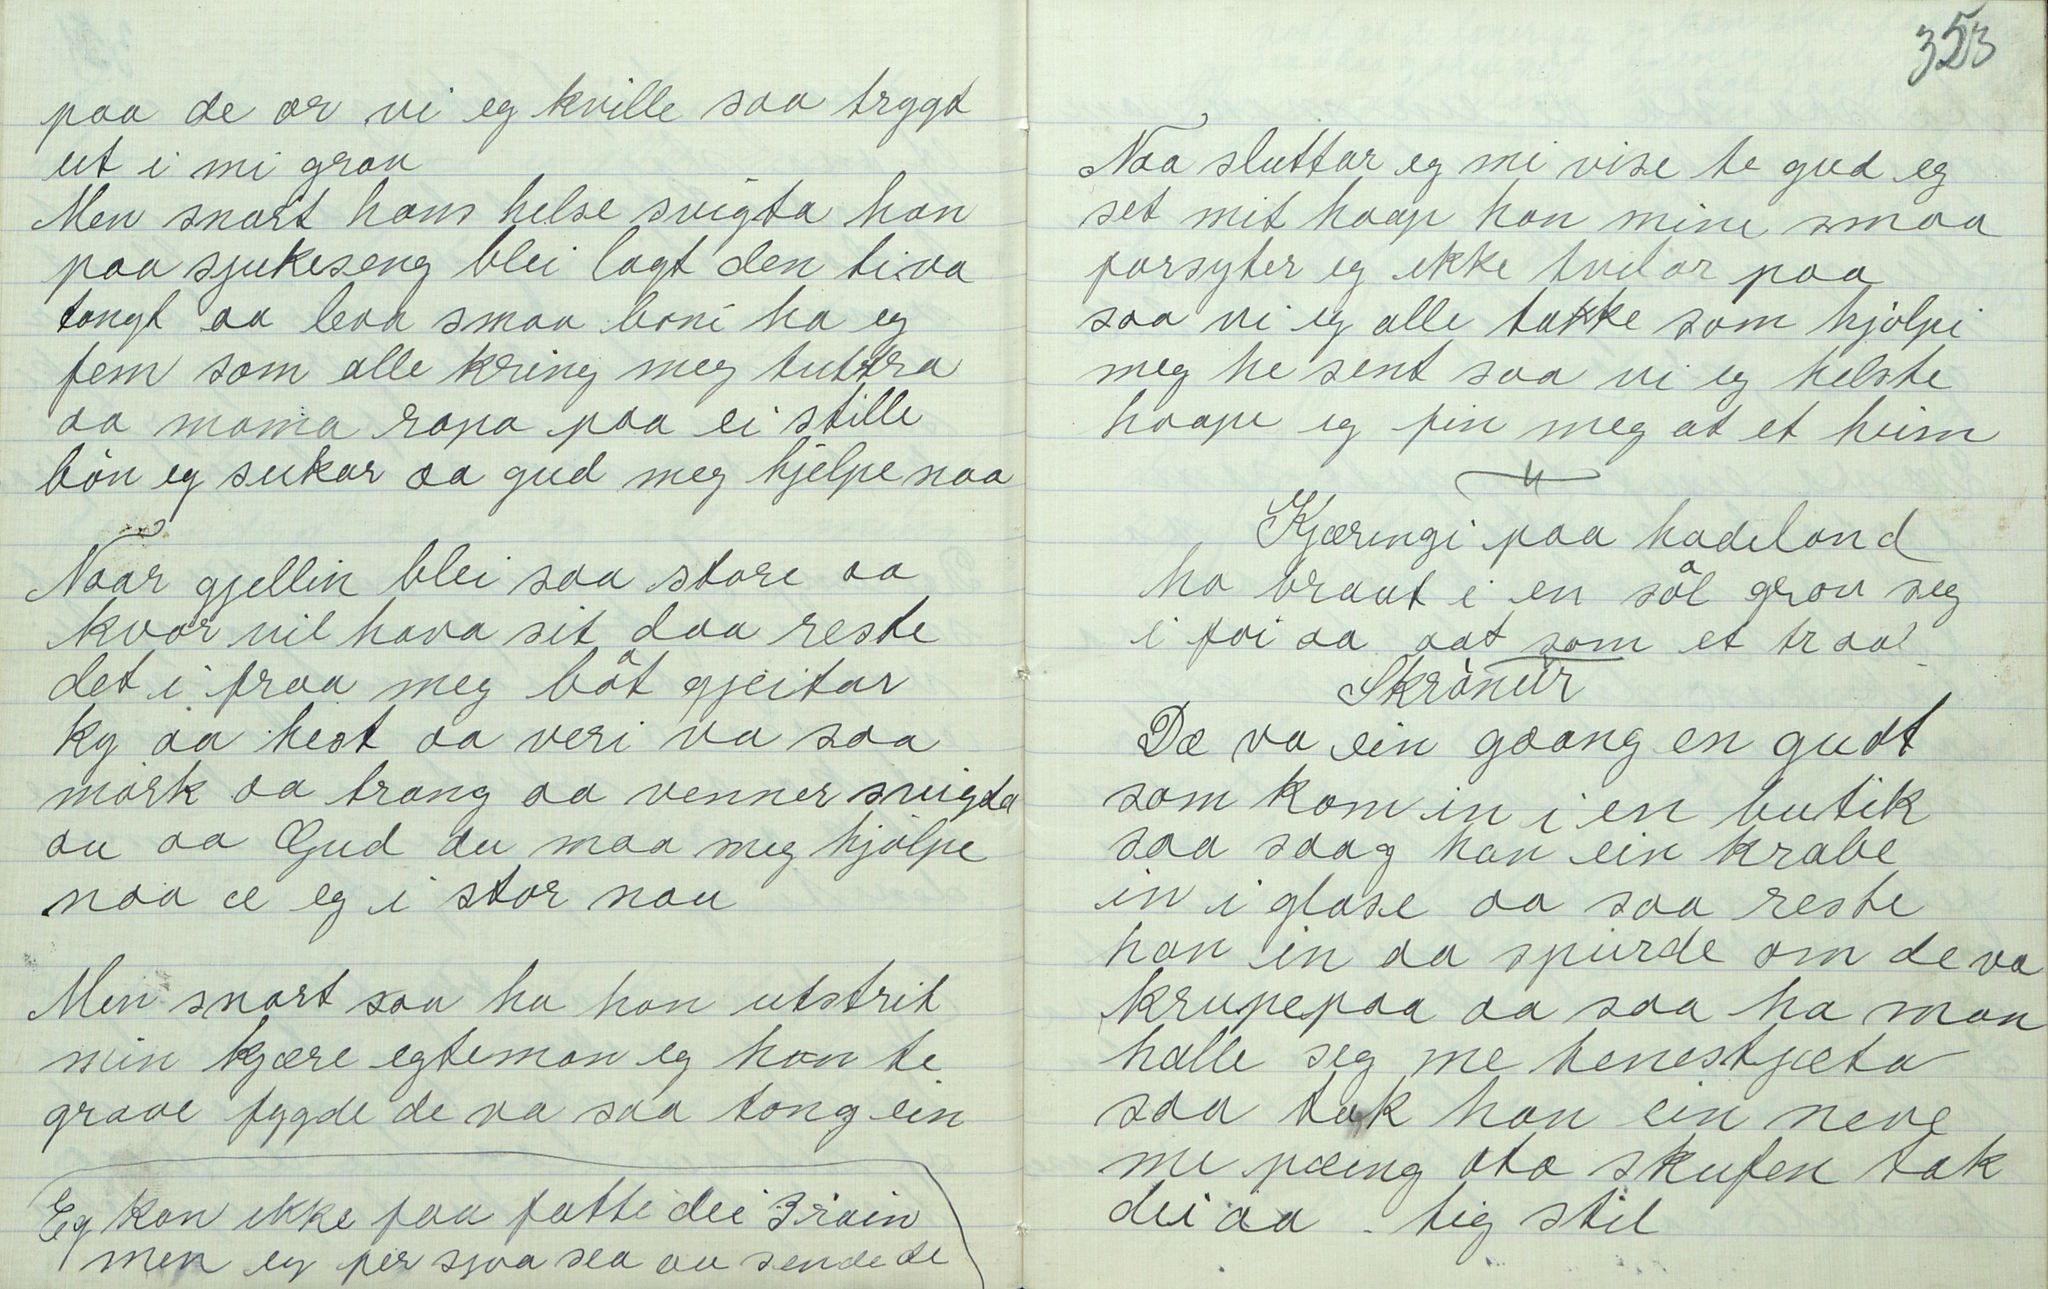 paa de ær vi eg kville saa trygt
ut i mi grav
Men snart hans helse svigta han
paa sjukeseng blei lagt den ti va
tongt aa leva smaa boni ha eg
fem som alle kring meg tuttra
aa mama ropa paa ei stille
bön eg sukar aa gud meg hjelpe naa
Naar gjellin blei saa store aa
kvar vil hava sit daa reste
det i fraa meg båt gjeitar
ky aa hest aa veri va saa
mörk aa trang aa venner svigta
au aa Gud du maa meg hjölpe
naa æ eg i stor nau
Men snart saa ha han utstrit
min kjære egteman eg han te
grave fygde de va saa tong ein
Eg kan ikke faa fatte dei 3 rain
men eg fer sjaa sea au sende de
353
Naa sluttar eg mi vise te gud eg
set mit haap han mine smaa
forsyter eg ikke tvilar paa
saa vi eg alle takke som hjölpi
meg he sent saa vi eg helste
haape eg fin meg at et heim
Kjæringi paa hadeland
ho braut i en söl grov seg
i foi aa aat som et traal
Skrönur
Dæ va ein gaang en gudt
som kom in i en butik
saa saag han ein krabe
in i glase aa saa reste
han in aa spurde om de va
krupepaa aa saa ha man
halle seg me henestjæta
saa tok han ein neve
me pæing ata skufen tok
dei aa - tig stil